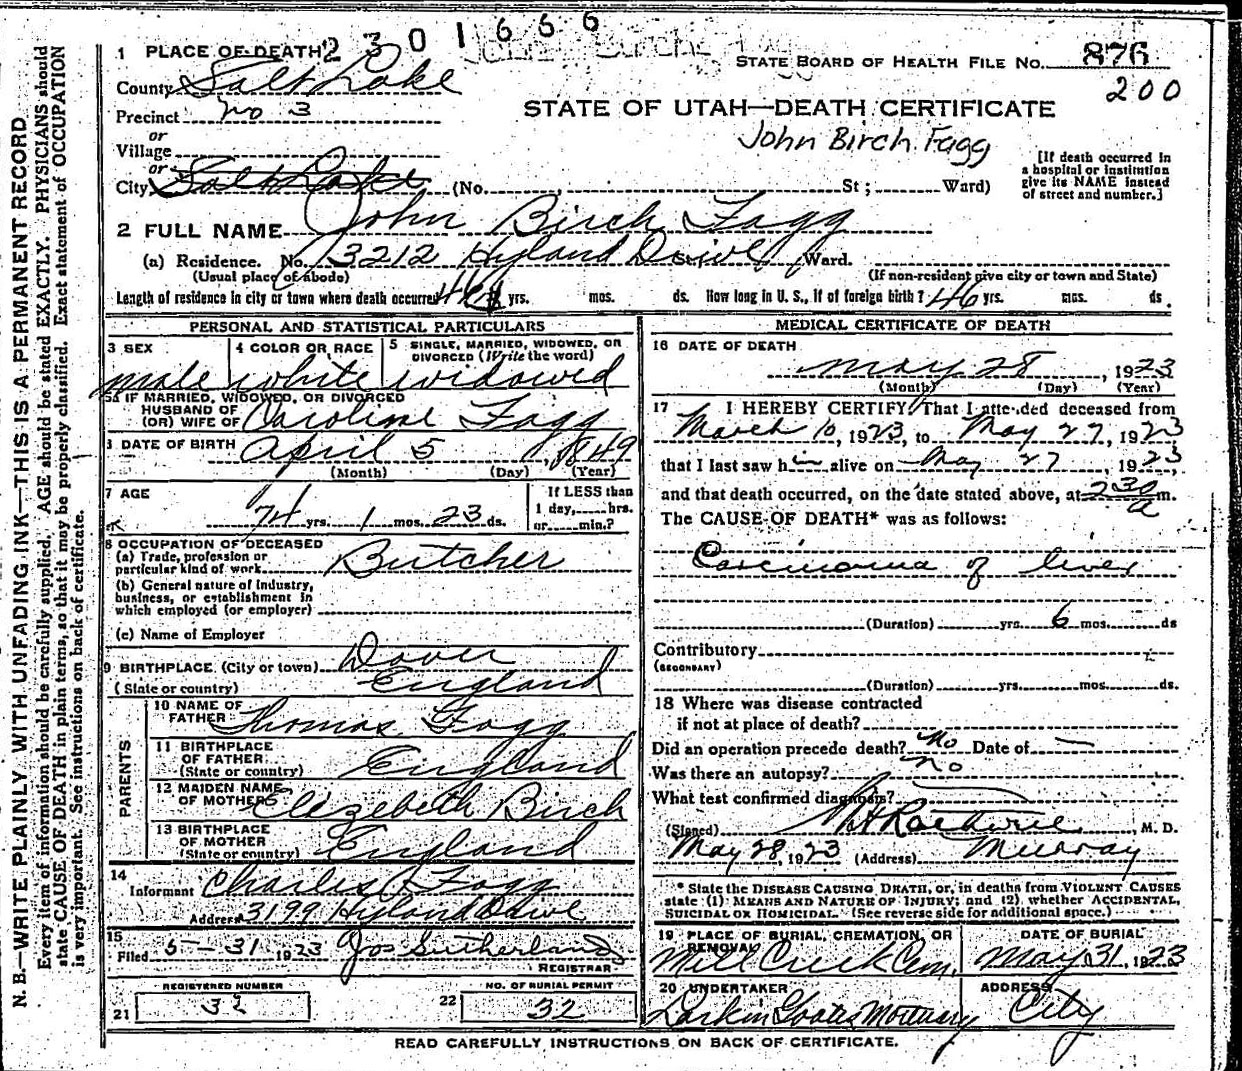 2301666
1 PLACE OF DEATH
STATE BOARD OF HEALTH FILE NO. 876
200
County Salt Lake
STATE OF UTAH—DEATH CERTIFICATE
Precinct No 3
John Birch Fagg
or
Village
or
City Salt Lake (No. , St; Ward)
[If death occurred in a hospital or institution give its NAME instead of street and number.]
2 FULL NAME John Birch Fagg
(a) Residence. No. 3212 Hyland Drive Ward.
(Usual place of abode) (If non-resident give city or town and State)
Length of residence in city or town where death occurred yrs. mos. ds. How long in U. S., if of foreign birth? 46 yrs. mos. ds.
PERSONAL AND STATISTICAL PARTICULARS
3 SEX
male
4 COLOR OR RACE
white
5 SINGLE, MARRIED, WIDOWED, OR DIVORCED (Write the word)
widowed
5a IF MARRIED, WIDOWED, OR DIVORCED
HUSBAND OF
(OR) WIFE OF Caroline Fagg
DATE OF BIRTH April 5, 1849
(Month) (Day) (Year)
7 AGE
74 yrs. 1 mos. 23 ds.
If LESS than
1 day, hrs.
or min.?
8 OCCUPATION OF DECEASED
(a) Trade, profession or
particular kind of work Butcher
(b) General nature of industry,
business, or establishment in
which employed (or employer)
(c) Name of Employer
9 BIRTHPLACE (City or town) Dover
(State or country) England
PARENTS
10 NAME OF
FATHER Thomas Fagg
11 BIRTHPLACE
OF FATHER
(State or country) England
12 MAIDEN NAME
OF MOTHER Elizebeth Birch
13 BIRTHPLACE
OF MOTHER
(State or country) England
14
Informant Charles Fagg
Address 3199 Hyland Drive
15
Filed 5-31 1923 Jos Sutherland
REGISTRAR
REGISTERED NUMBER
21 32
NO. OF BURIAL PERMIT
22 32
MEDICAL CERTIFICATE OF DEATH
16 DATE OF DEATH
May 28, 1923
(Month) (Day) (Year)
17 I HEREBY CERTIFY, That I attended deceased from
March 10, 1923, to May 27, 1923
that I last saw him alive on May 27, 1923,
and that death occurred, on the date stated above, at 230 a m.
The CAUSE OF DEATH* was as follows:
Carcinoma of liver
(Duration) yrs. 6 mos. ds
Contributory
(SECONDARY)
(Duration) yrs. mos. ds.
18 Where was disease contracted
if not at place of death?
Did an operation precede death? No Date of —
Was there an autopsy? No
What test confirmed diagnosis?
(Signed) , M. D.
May 28, 1923 (Address) Murray
* State the DISEASE CAUSING DEATH, or, in deaths from VIOLENT CAUSES
state (1) MEANS AND NATURE OF INJURY; and (2) whether ACCIDENTAL,
SUICIDAL OR HOMICIDAL. (See reverse side for additional space.)
19 PLACE OF BURIAL, CREMATION, OR
REMOVAL
Mill Creek Cem.
DATE OF BURIAL
May 31, 1923
20 UNDERTAKER
Larkin Goates Mortuary
ADDRESS
City
READ CAREFULLY INSTRUCTIONS ON BACK OF CERTIFICATE.
N. B.—WRITE PLAINLY WITH UNFADING INK—THIS IS A PERMANENT RECORD
Every item of information should be carefully supplied. AGE should be stated EXACTLY. PHYSICIANS should
state CAUSE OF DEATH in plain terms, so that it may be properly classified. Exact statement of OCCUPATION
is very important. See instructions on back of certificate.